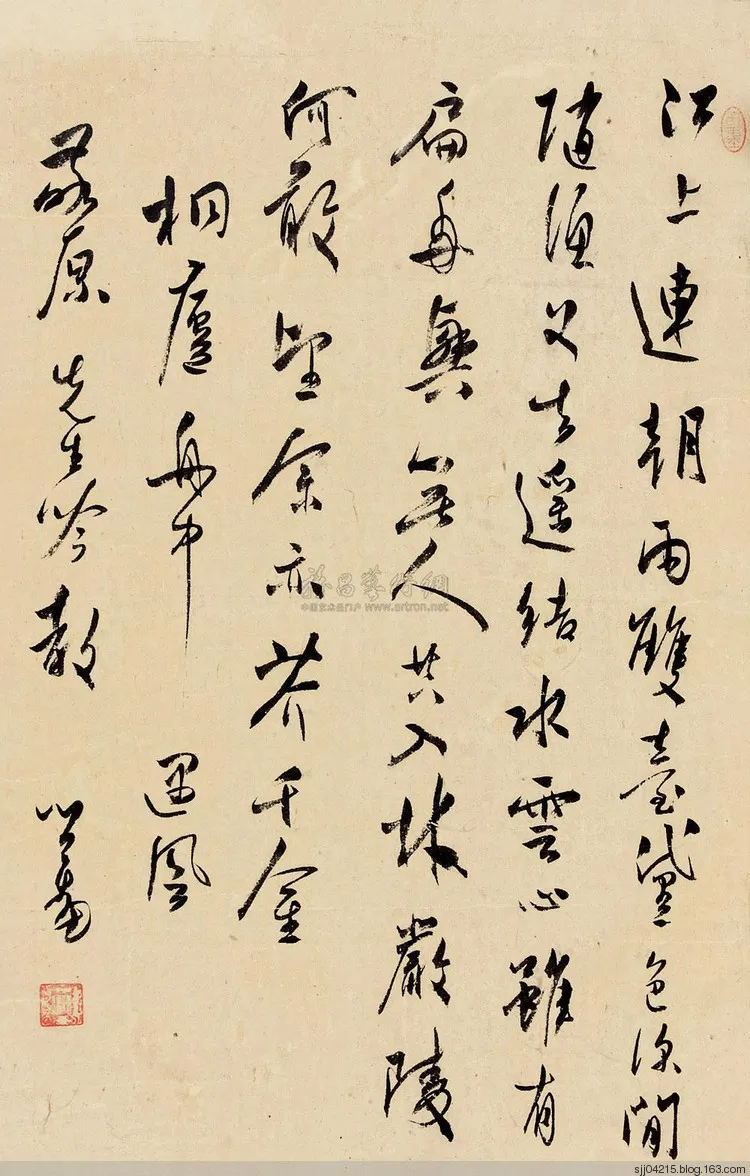 江上連朝雨雙臺黛色深閒
隨漁父去遥結水雲心雖有
扁舟興無人共入林嚴陵
何敢望余亦芥千金
桐廬舟中 遇風
原先生吟教 心畬
雅昌藝術網
中国艺术品门户 www.artron.net
sjj04215.blog.163.com